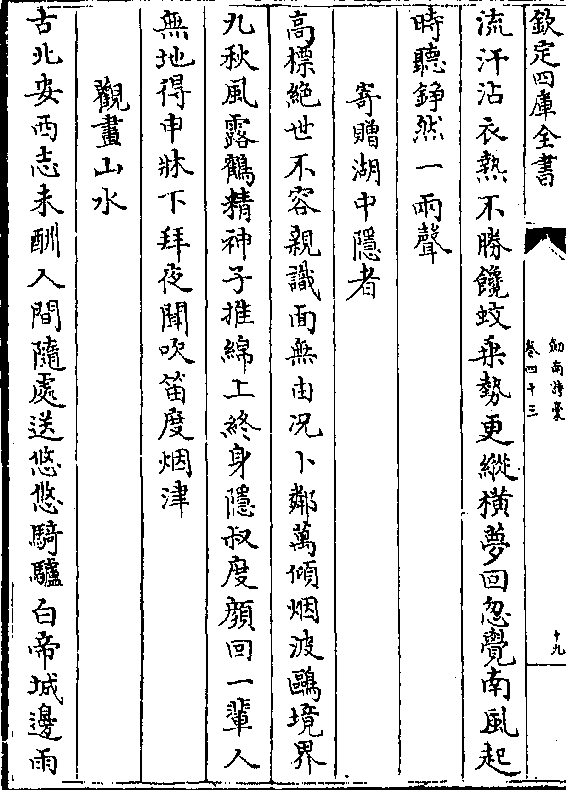 欽定四庫全書
劍南詩藁
卷四十三
十九
流汗沾衣熱不勝饞蚊乗勢更縱横夢回忽覺南風起
時聽錚然一兩聲
寄贈湖中隱者
髙標絶世不容親識面無由况卜鄰萬傾烟波鷗境界
九秋風露鶴精神子推綿上終身隱叔度顔回一輩人
無地得申牀下拜夜聞吹笛度烟津
觀畫山水
古北安西志未酬人間隨處送悠悠騎驢白帝城邊雨